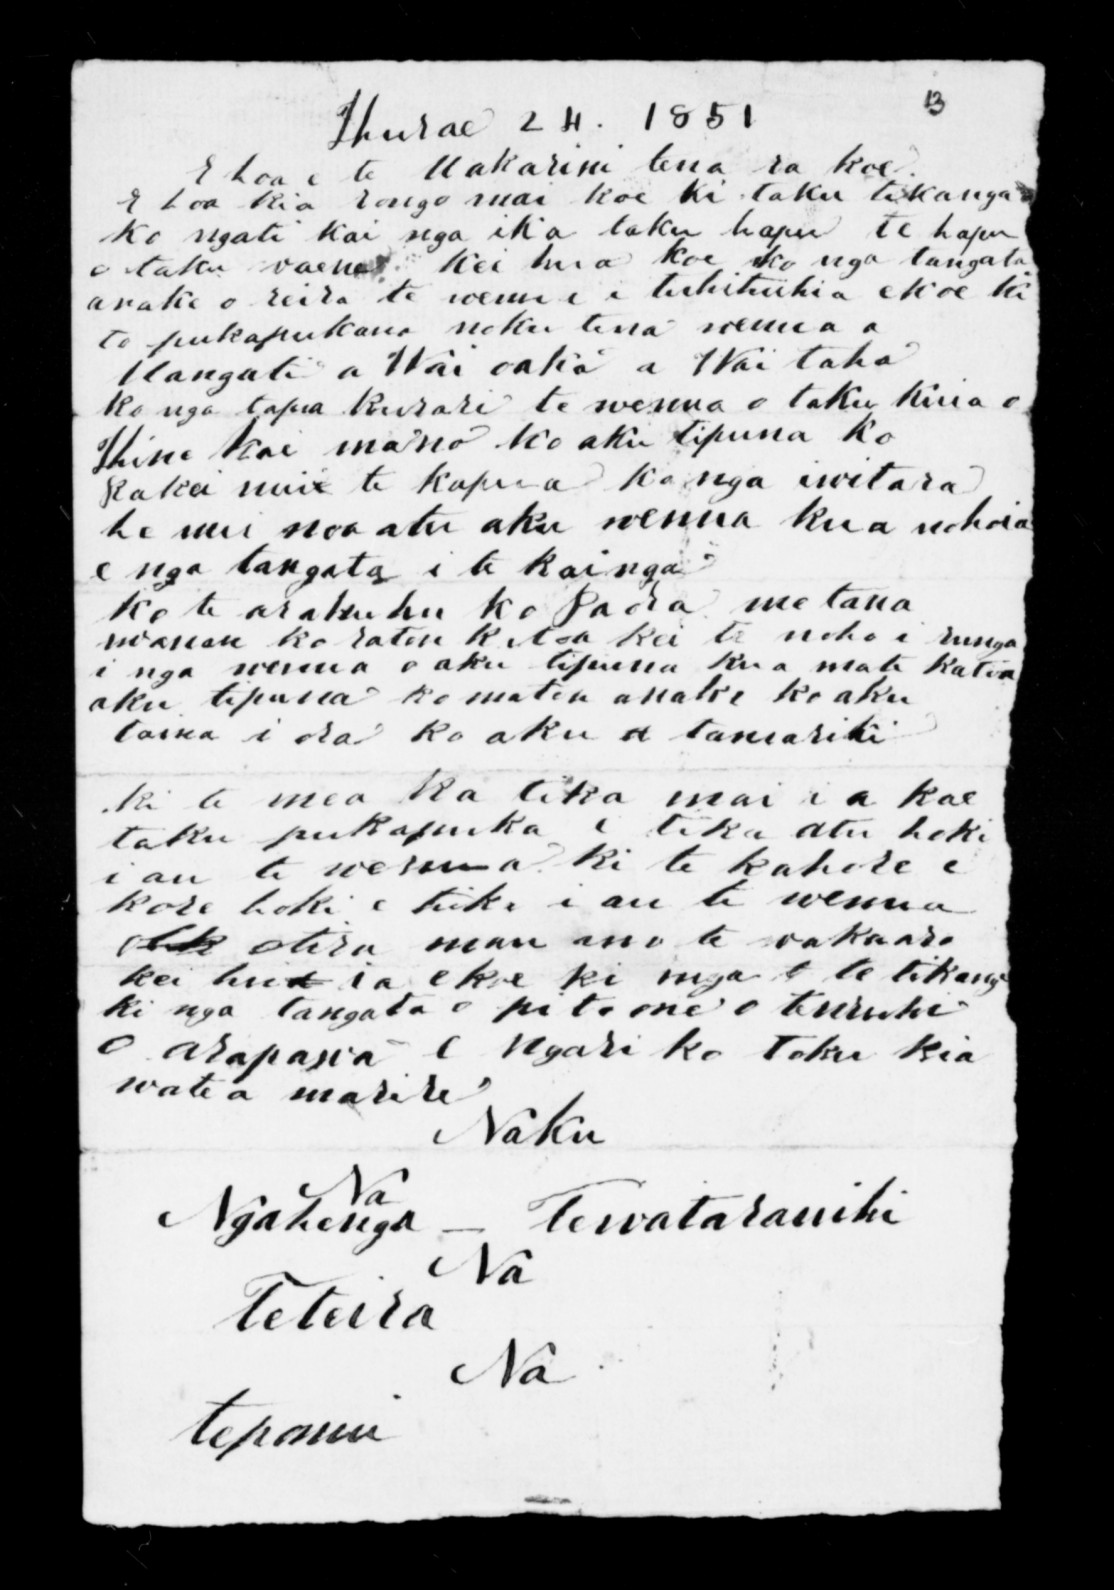 13
Hurae 24. 1851
E hoa e te Makarini tena ra koe
E hoa kia rongo mai koe ki taku tikanga
ko ngati kai nga ika taku hapu te hapu
o taku waena kei hua koe ko nga tangata
anake o reira te wenua i tuhituhia ekoe ki
to pukapukano noku tena wenua a
Mangati a Wai oaka a Wai taha
ko nga tapua kurari te wenua o taku kuia o
Hine kai mano ko aku tipuna ko
Rakei nui te kapua ko nga iwitara
he nui noa atu aku wenua kua nohoia
e nga tangata i te kainga
ko te arahuhu ko Paora me tana
wanau ko ratou katoa kei te noho i runga
i nga wenua o aku tipuna kua mate katoa
aku tipuna ko matou anake ko aku
taina i ora ko aku tamariki
ki te mea ka tika mai i a koe
taku pukapuka e tika atu hoki
i au te wenua ki te kahore e
kore hoki e tika i au te wenua
otira mau ano te wakaaro
kei huia ekoe ki nga te tikanga
ki nga tangata o pitoone o teuruhi
o arapawa e ngari ko toku kia
watea marire
Naku
Na
Ngahenga — Tewataranihi
Na
Teteira
Na